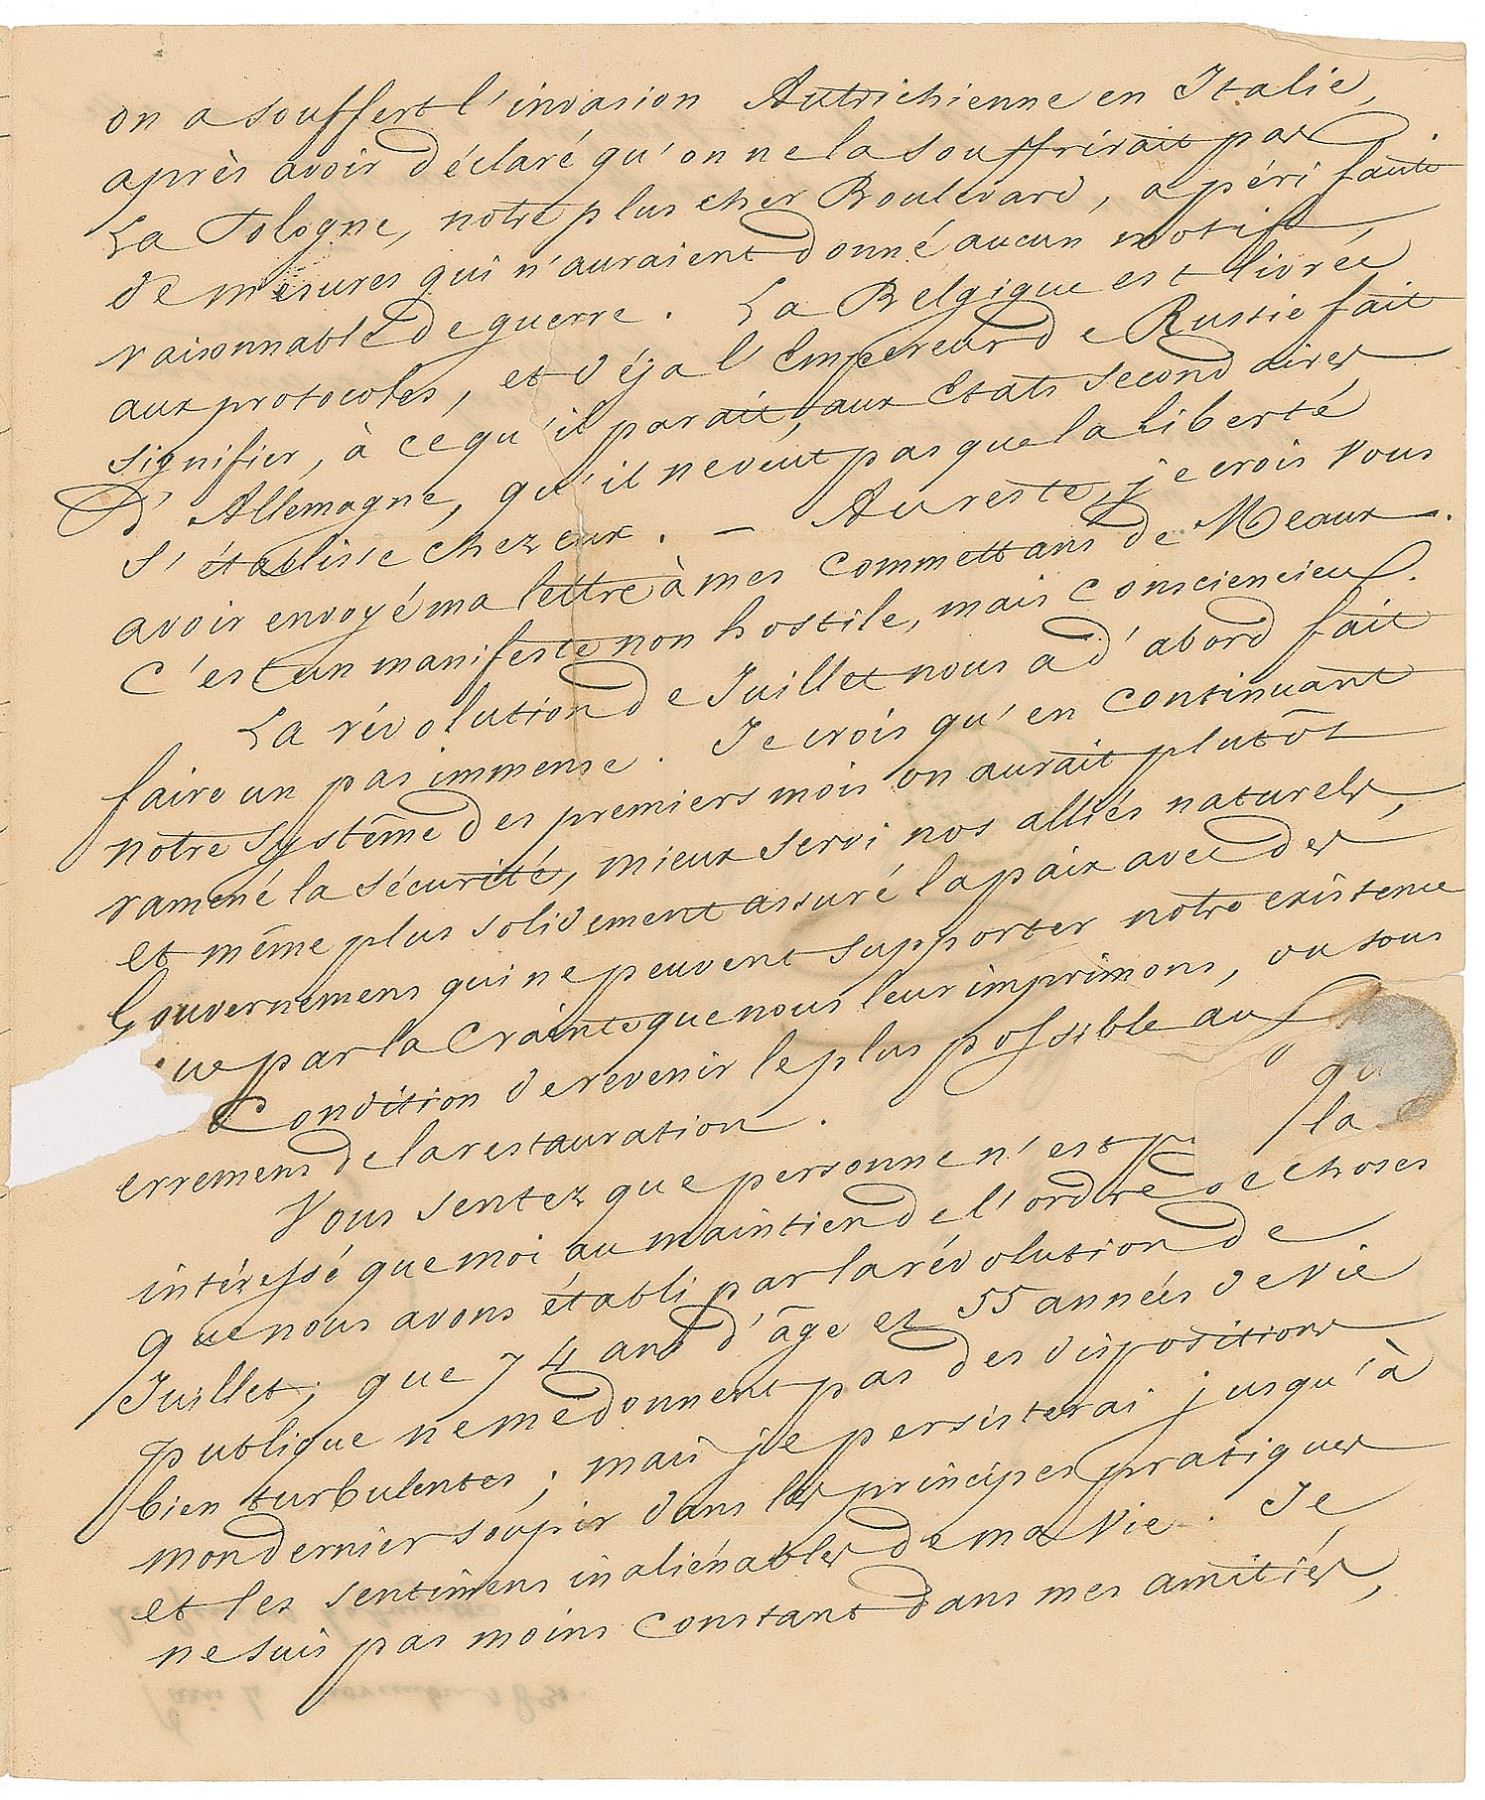 on a souffert l'invasion Autrichienne en Italie,
après avoir déclaré qu'on ne la souffrirait pas.
La Pologne, notre plus cher Boulevard, a péri faute
de mesures qui n'auraient donné aucun motif
raisonnable de guerre. La Belgique est livrée
aux protocoles, et déja l'Empereur de Russie fait
signifier, à ce qu'il parait, aux Etats secondaires
d'Allemagne, qu'il ne veut pas que la liberté
s'établisse chez eux. — Au reste, je crois vous
avoir envoyé ma lettre à mes commettans de Meaux.
C'est un manifeste non hostile, mais consciencieux.
La révolution de Juillet nous a d'abord fait
faire un pas immense. Je crois qu'en continuant
notre systême des premiers mois on aurait plutôt
ramené la sécurité, mieux servi nos alliés naturels,
et même plus solidement assuré la paix avec des
Gouvernemens qui ne peuvent supporter notre existence
ue par la Crainte que nous leur imprimons, ou sous
Condition de revenir le plus possible aux
erremens de la restauration.
Vous sentez que personne n'est p qu la
intéressé que moi au maintien de l'ordre de choses
que nous avons établi par la révolution de
Juillet; que 74 ans d'âge et 55 années de vie
publique ne me donnent pas des dispositions
bien turbulentes; mais je persisterai jusqu'à
mon dernier soupir dans les principes pratiques
et les sentimens inaliénables de ma vie. Je
ne suis pas moins constant dans mes amitiés,